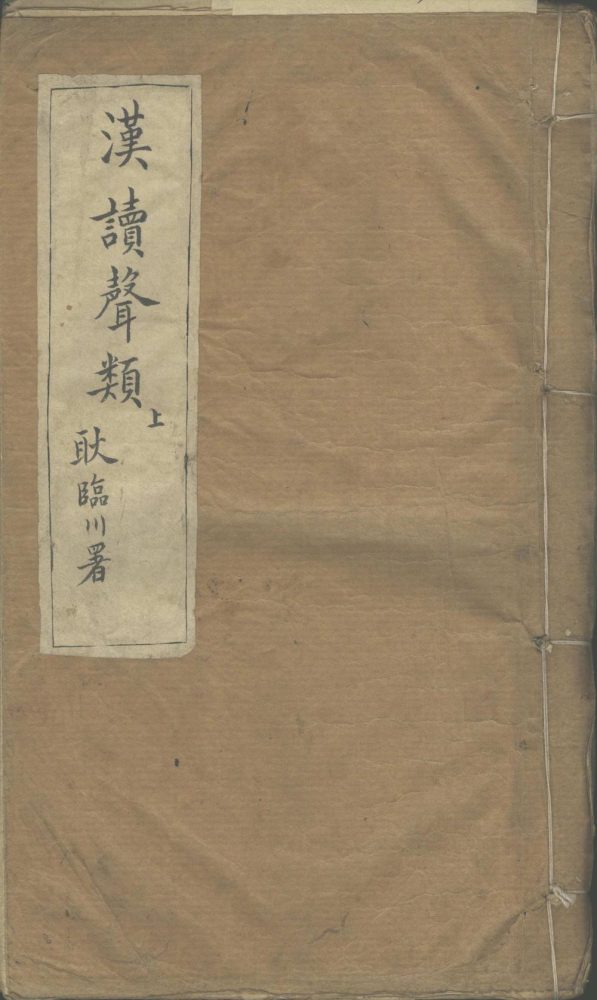 漢讀聲類上
耿臨川署